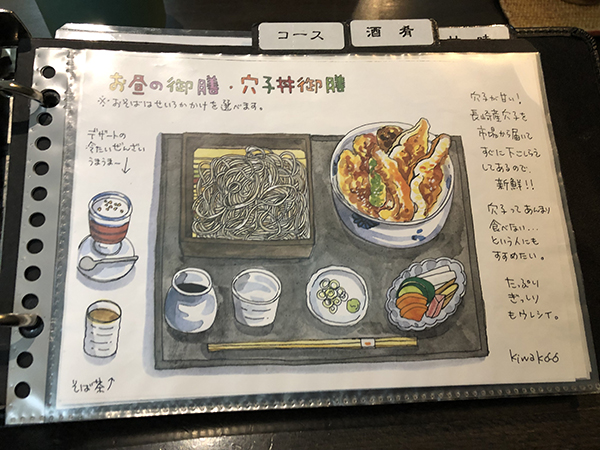 コース
酒肴
お昼の御膳・穴子丼御膳
※おそばはせいろかかけを選べます。
デザートの
冷たいぜんざい
うまうま〜
↓
穴子が甘い!
長崎産穴子を
市場から届いて
すぐに下ごしらえ
してあるので、
新鮮!!
穴子ってあんまり
食べない…
という人にも
すすめたい。
たっぷり
ぎっしり
もウレシイ。
kiwakoo
そば茶↑